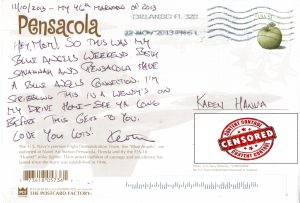 11/10/2013 - MY 46th MARATHON OF 2013
Pensacola
ORLANDO FL 328
12 NOV 2013 PM 6 L
HEY MOM! SO THIS WAS MY
BLUE ANGELS WEEKEND. BOTH
SAVANNAH AND PENSACOLA HAVE
A BLUE ANGELS CONNECTION. I'M
SCRIBBLING THIS IN A WENDY'S ON
MY DRIVE HOME - SEE YA LONG
BEFORE THIS GETS TO YOU.
LOVE YOU LOTS!
KAREN HANNA
CONTENT CONTROL
CENSORED
CONTENT CONTROL
The U.S. Navy's premier Flight Demonstration Team, the "Blue Angels", are
stationed at Naval Air Station Pensacola, Florida and fly the F/A-18
"Hornet" strike fighter. Their proud tradition of courage and excellence has
THE POSTCARD FACTORY